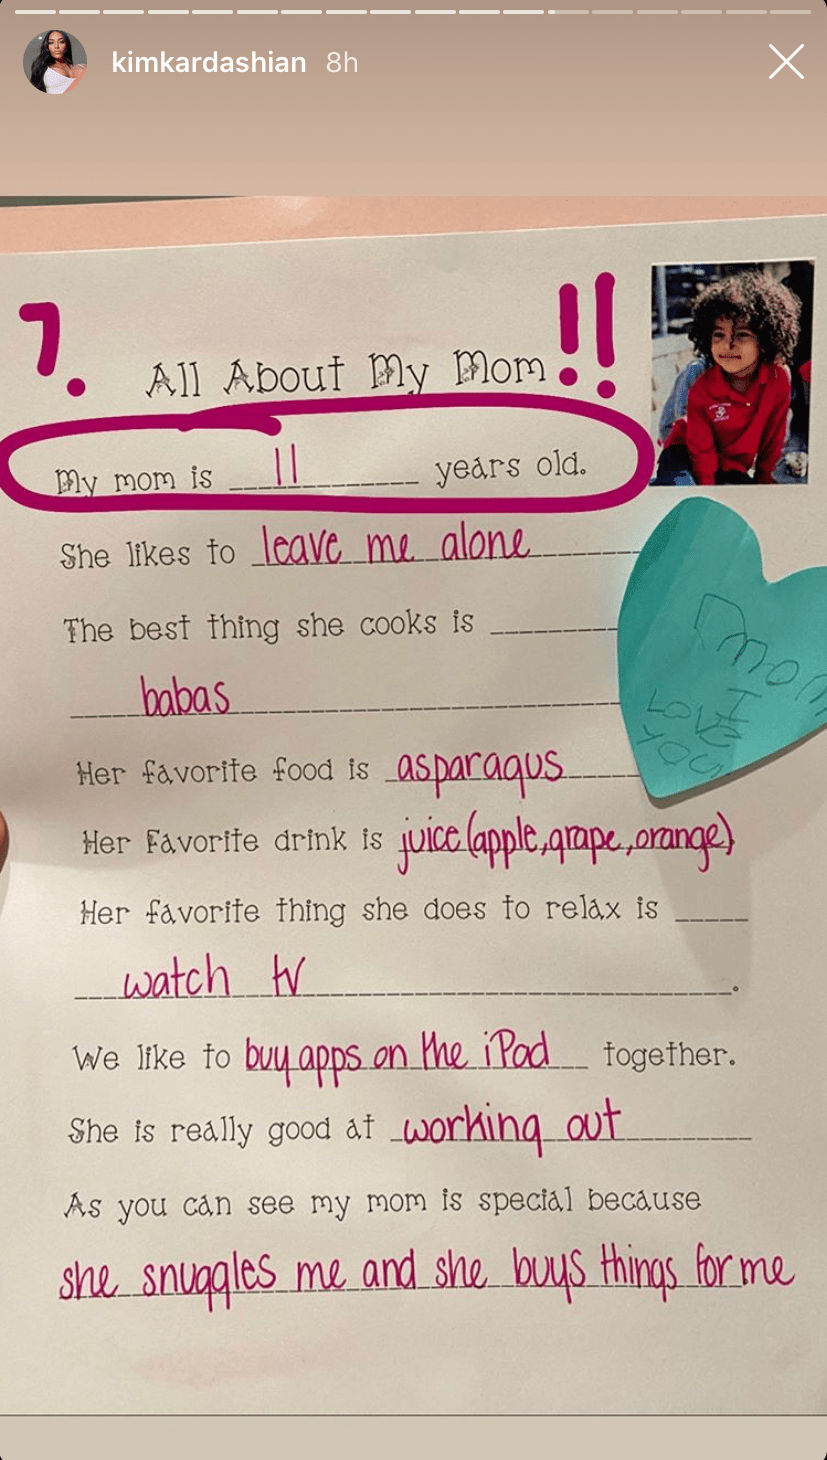 kimkardashian 8h
7.
!!
All About My Mom
My mom is 11 years old.
She likes to leave me alone
The best thing she cooks is
babas
Her favorite food is asparagus
Her Favorite drink is juice (apple, grape, orange)
Her favorite thing she does to relax is
watch tv.
We like to buy apps on the iPad together.
She is really good at working out
As you can see my mom is special because
she snuggles me and she buys things for me
Mom
I
LOVE
YOU